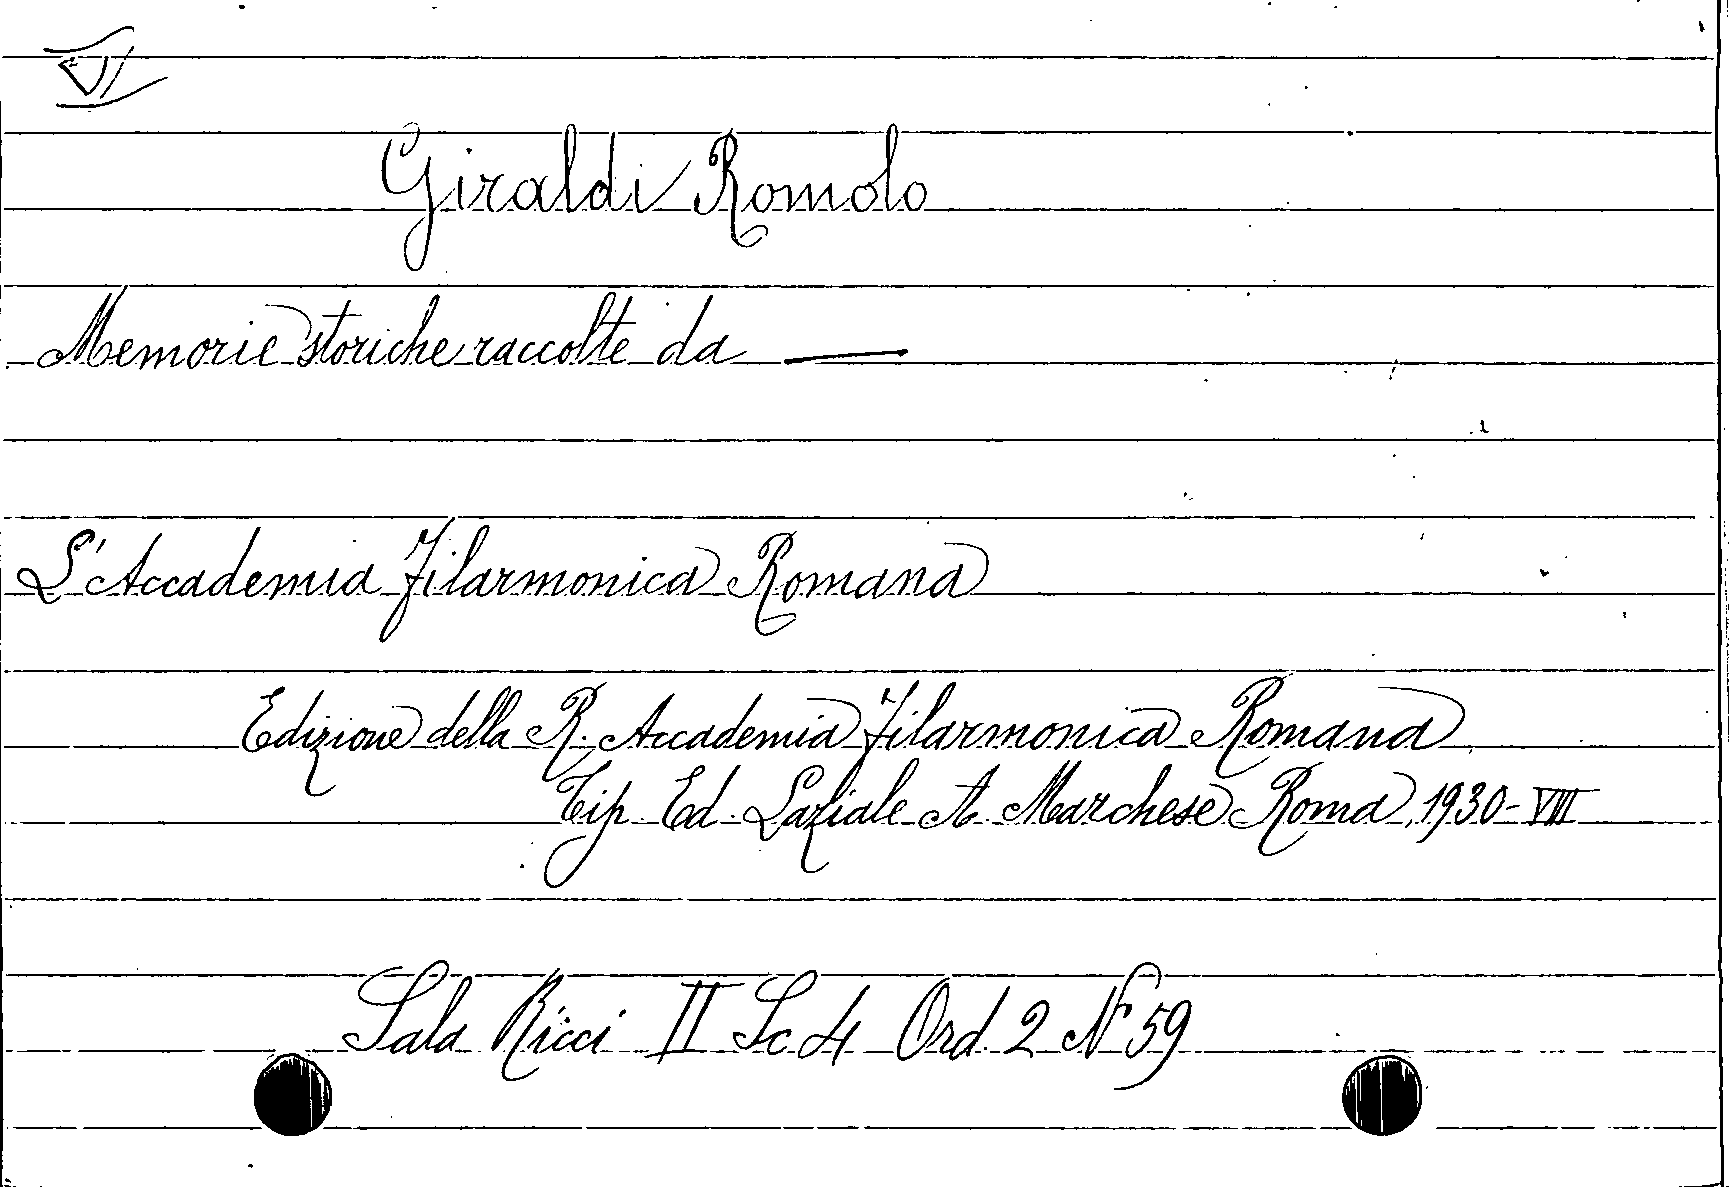 VI
Giraldi Romolo
Memorie storiche raccolte da —
L'Accademia Filarmonica Romana
Edizione della R. Accademia Filarmonica Romana
Tip. Ed. Laziale A. Marchese Roma, 1930-VIII
Sala Ricci II Sc 4 Ord. 2 N° 59